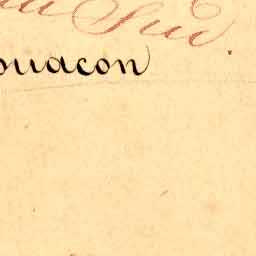 du Sud.
ouacon